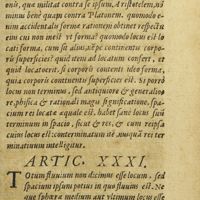 onis, quæ militat contra se ipsum, Aristotelem, nō
minus benè quam contra Platonem, quomodo e-
nim accidentalis formæ rationem obtinet respectu
eius cui non inest vt forma? quomodo locus est lo
cati forma, cum sit alius, ꝙ; pe continentis corpo
ris superficies? quid item ad locatum confert, vt
quid locatur? si corporis contenti ideo forma,
quia corporis continentis superficies est. Si porrò
locus non terminus, sed antiquiore & generalio
re physica & rationali magis significatione, spa-
cium res locatæ æquale est, habet sanè locus suū
terminum in spacio, sicut & res, & cum respicia
tur locus est: conterminatum ꝗ́ vnàquā rei ter
minatiuum intelligitur.
ARTIC. XXXI.
TOtum fluuium non dicimus esse locum, sed
spacium ipsum potius in quo fluuius est. Ne
que sphæræ medium aut vltimum locus esse